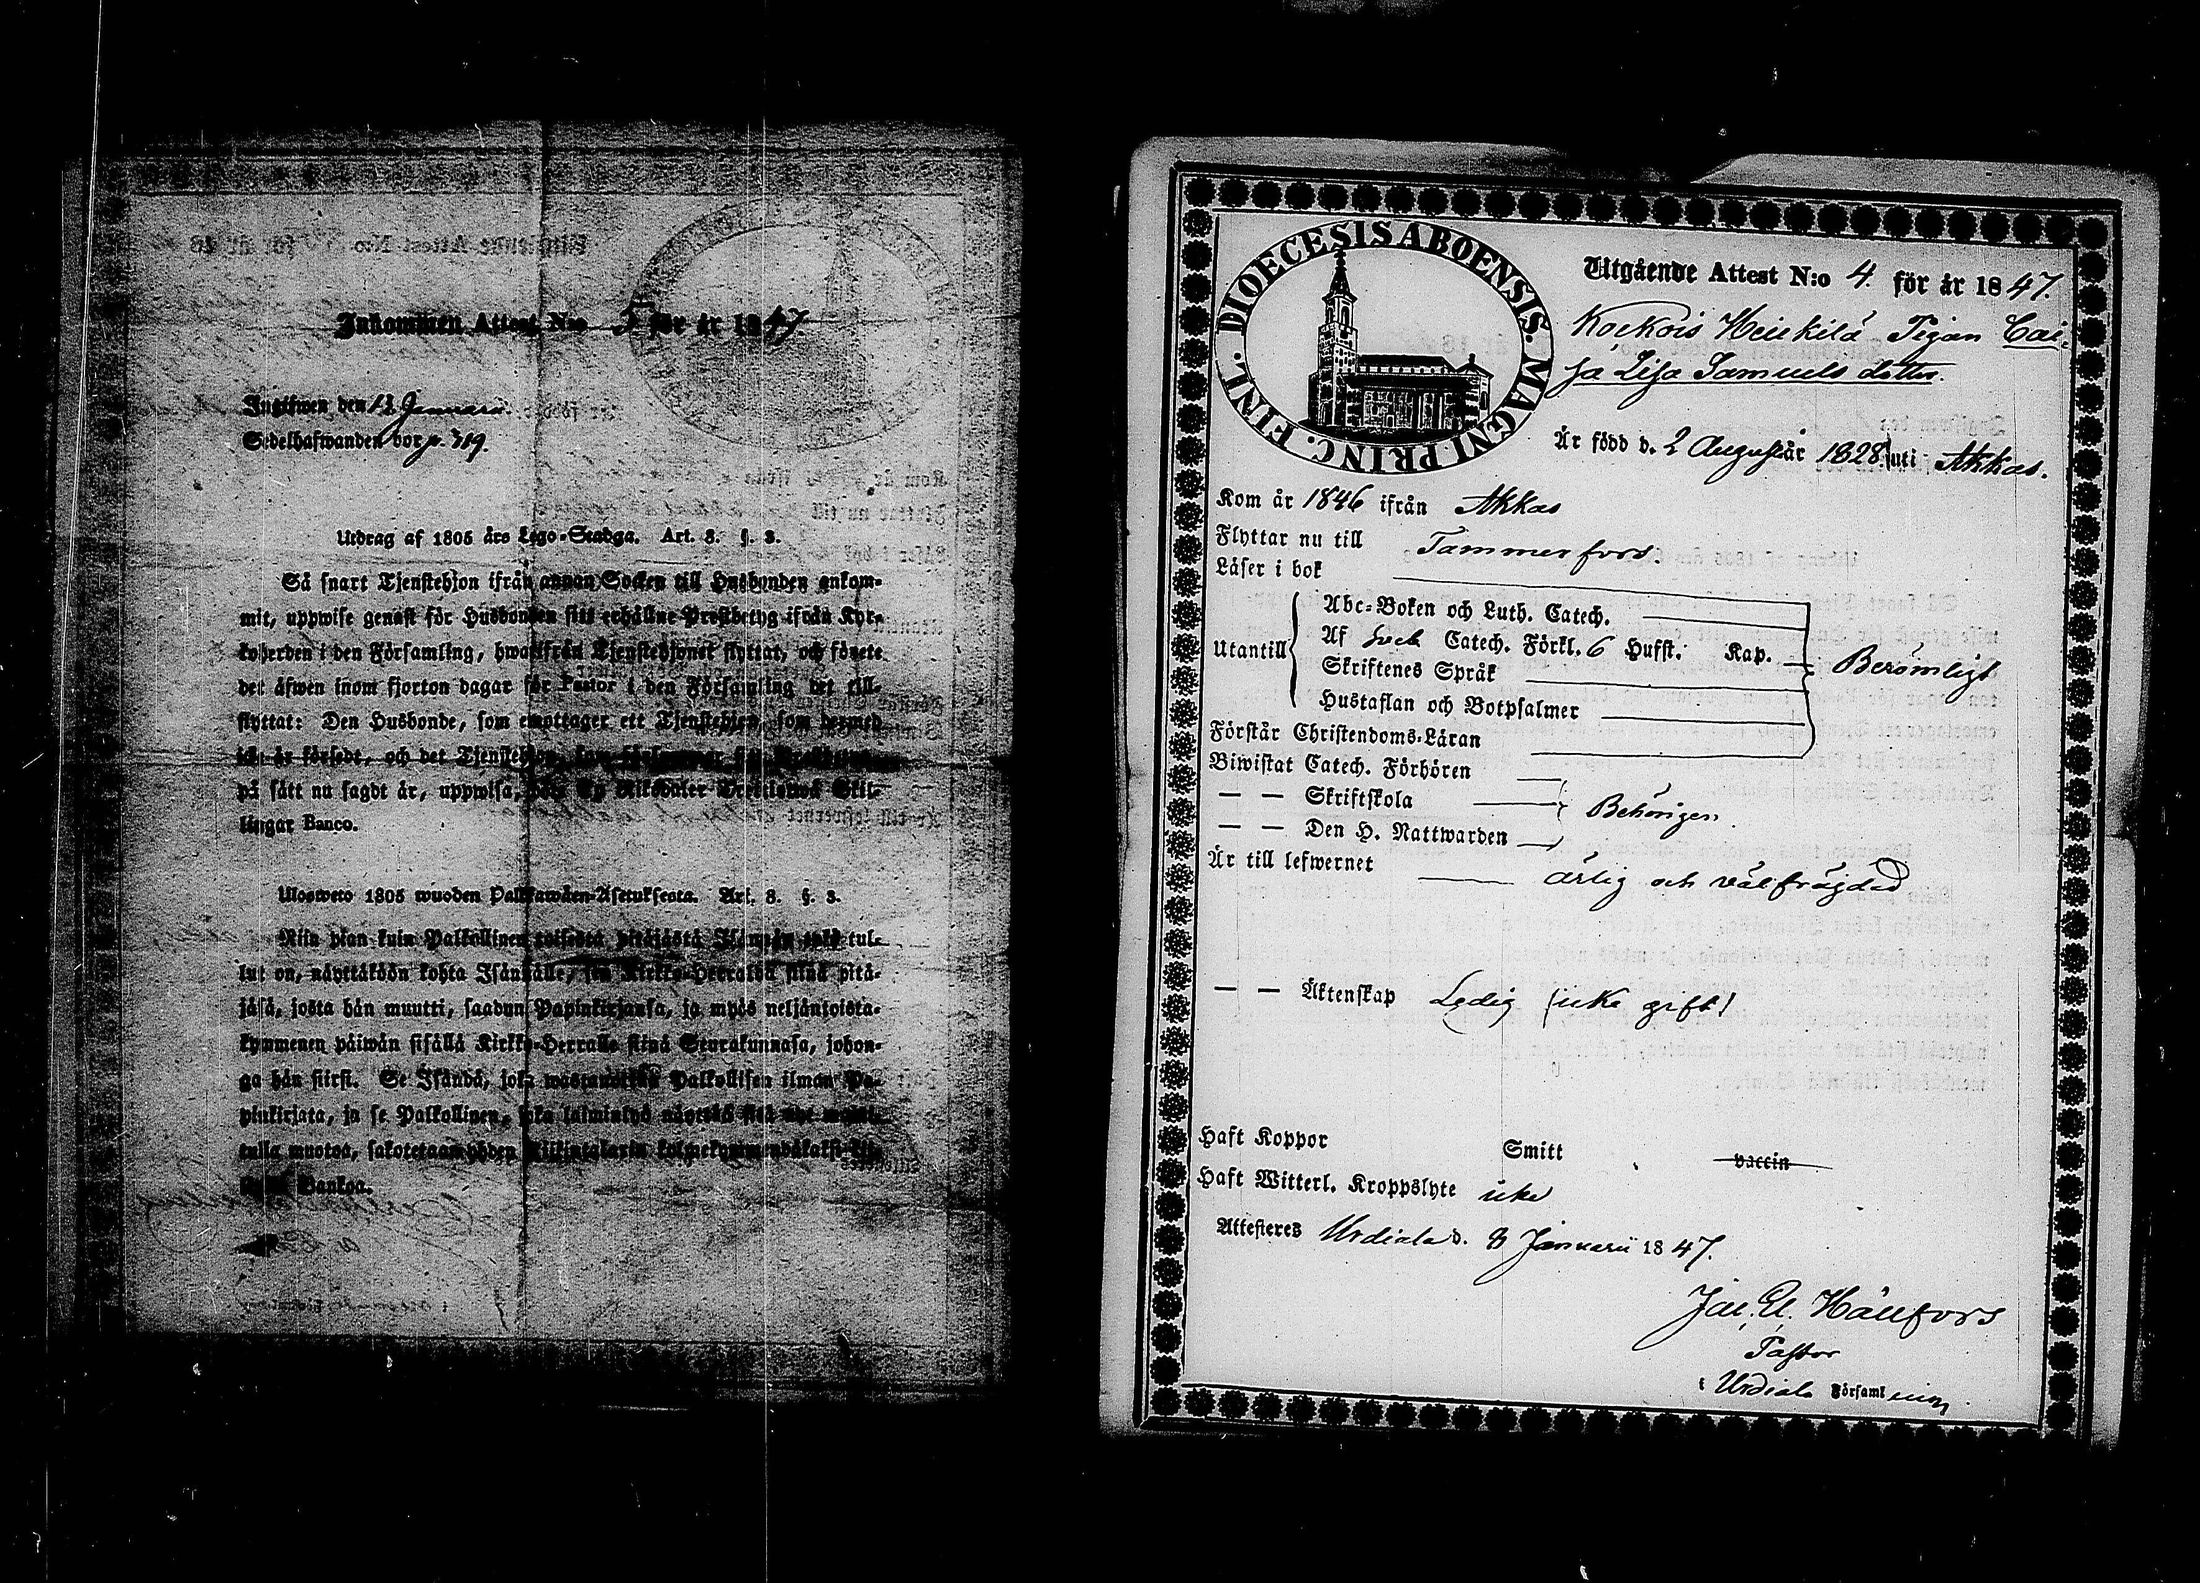 Inkommen Attest N:o 5 för år 1847.
Ingifwen den 12 Januarii
Sedelhafwanden bor p. 319.
Utdrag af 1805 års Lego-Stadga. Art. 3. §. 3.
Så snart Tjenstehjon ifrån annan Socken till Husbonden ankom-
mit, uppwise genast för Husbonden sitt erhållne Prestbetyg ifrån Kyr-
koherden i den Församling, hwarifrån Tjenstehjonet flyttat, och förete
det äfwen inom fjorton dagar för Pastor i den Församling det till-
flyttat: Den Husbonde, som emottager ett Tjenstehjon, som dermed
icke är försedt, och det Tjenstehjon,
på sätt nu sagdt är, uppwisa, Riksdaler Skil-
lingar Banco.
Ulosweto 1805 wuoden Palkawäen-Asetuksesta. Art. 3. §. 3.
Niin pian kuin Palkollinen toisesta pitäjästä Isännän tykö tul-
lut on, näyttäköön kohta Isännälle, sen Kirkko-Herralda siinä pitä-
jäsä, josta hän muutti, saadun Papinkirjansa, ja myös neljäntoista-
kymmenen päiwän sisällä Kirkko-Herralle siinä Seurakunnasa, johon-
ga hän siirsi. Se Isändä, joka wastanottaa Palkollisen ilman Pa-
pinkirjata, ja se Palkollinen, joka laiminlyö näyttää sitä nyt
tulla muotoa, sakotetaan yhden Riikintalarin kolmekymmendäkaksi
Bankoa.
DIOECESIS ABOENSIS. MAGNI PRINC. FINL.
Utgående Attest N:o 4. för år 1847.
Kockois Heickilä Pigan Cai-
sa Lisa Samuels dotter.
Är född d. 2 August år 1828. uti Akkas.
Kom år 1846 ifrån Akkas
Flyttar nu till Tammerfors.
Läser i bok
Utantill
Abc-Boken och Luth. Catech.
Af Sveb Catech. Förkl. 6 Hufst. Kap. Berömligt
Skriftenes Språk
Hustaflan och Botpsalmer
Förstår Christendoms-Läran
Biwistat Catech. Förhören
— — Skriftskola Behörigen.
— — Den H. Nattwarden
Är till lefwernet ärlig och välfrägdad
— — Äktenskap Ledig (icke gift)
Haft Koppor Smitt vaccin
Haft Witterl. Kroppslyte icke
Attesteres Urdiala d. 8 Januarii 1847.
Jac. El. Hällfors
Pastor
i Urdiala Församling.